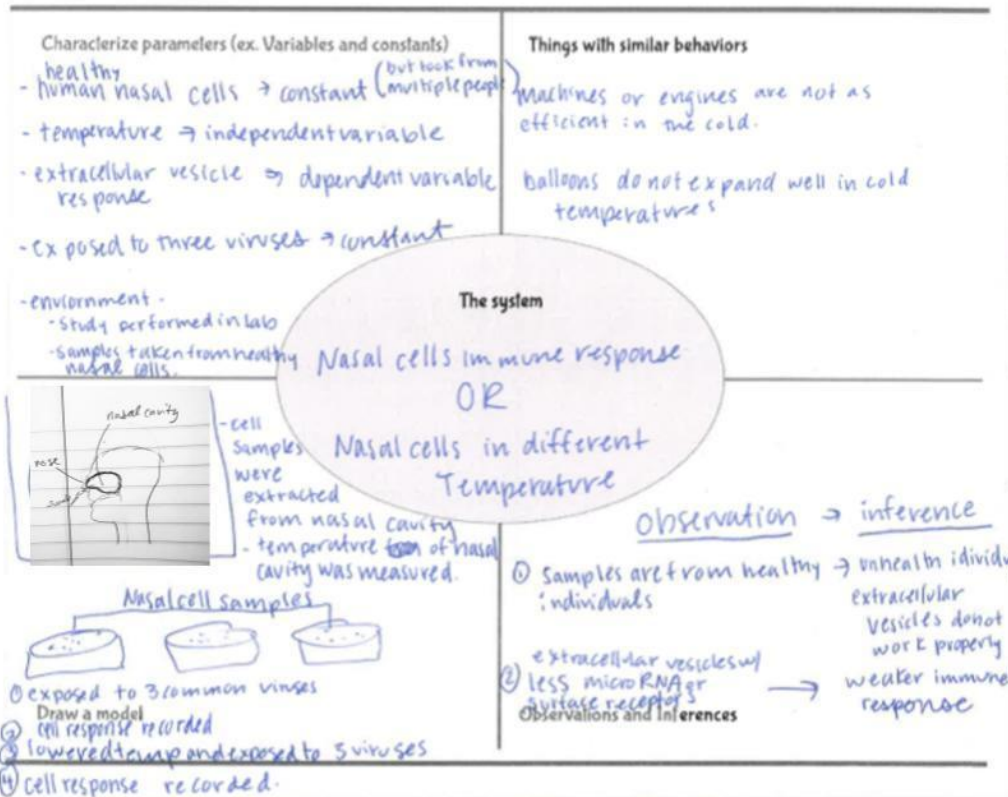 Characterize parameters (ex. Variables and constants)
healthy
- human nasal cells → constant (but took from multiple people)
- temperature → independent variable
- extracellular vesicle → dependent variable
response
- exposed to three viruses → constant
- enviornment -
- study performed in lab
- samples taken from healthy
nasal cells.
Things with similar behaviors
machines or engines are not as
efficient in the cold.
balloons do not expand well in cold
temperatures
The system
Nasal cells immune response
OR
Nasal cells in different
Temperature
nasal cavity
nose
- cell
samples
were
extracted
from nasal cavity
- temperature of nasal
cavity was measured.
Nasal cell samples
① exposed to 3 common viruses
Draw a model
② cell response recorded
③ lowered temp and exposed to 3 viruses
④ cell response recorded.
Observation → inference
① Samples are from healthy → unhealth idividu
individuals
extracellular
vesicles donot
work properly
② extracellular vesicles w/
less microRNA or
surface receptors → weaker immune
response
Observations and Inferences